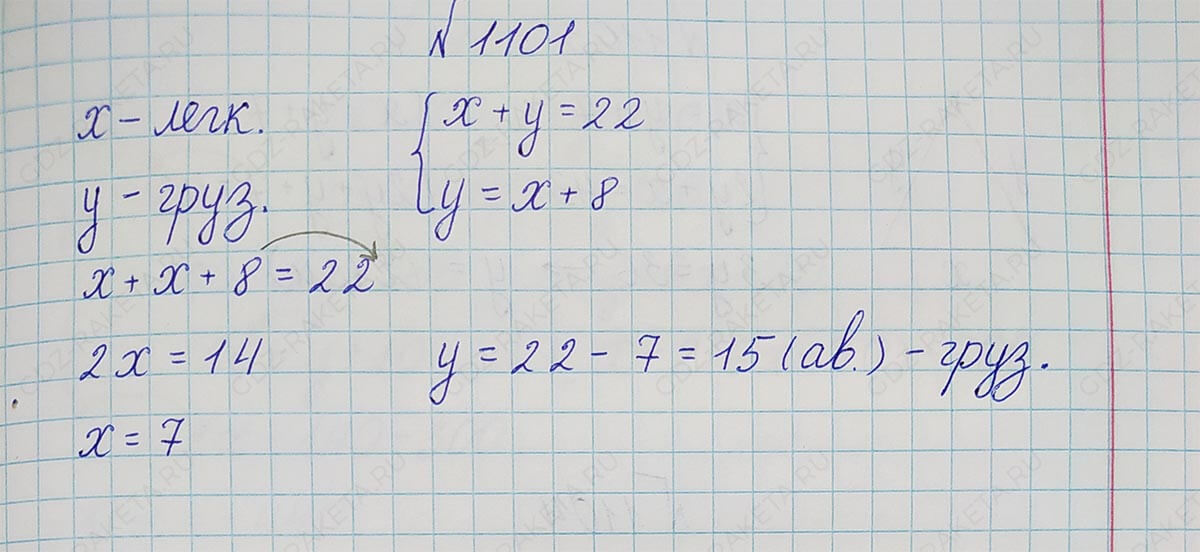 № 1101
x – легк.
x + y = 22
y – груз.
y = x + 8
x + x + 8 = 22
2x = 14
y = 22 – 7 = 15 (ав.) – груз.
x = 7
GDZ-RAKETA.RU